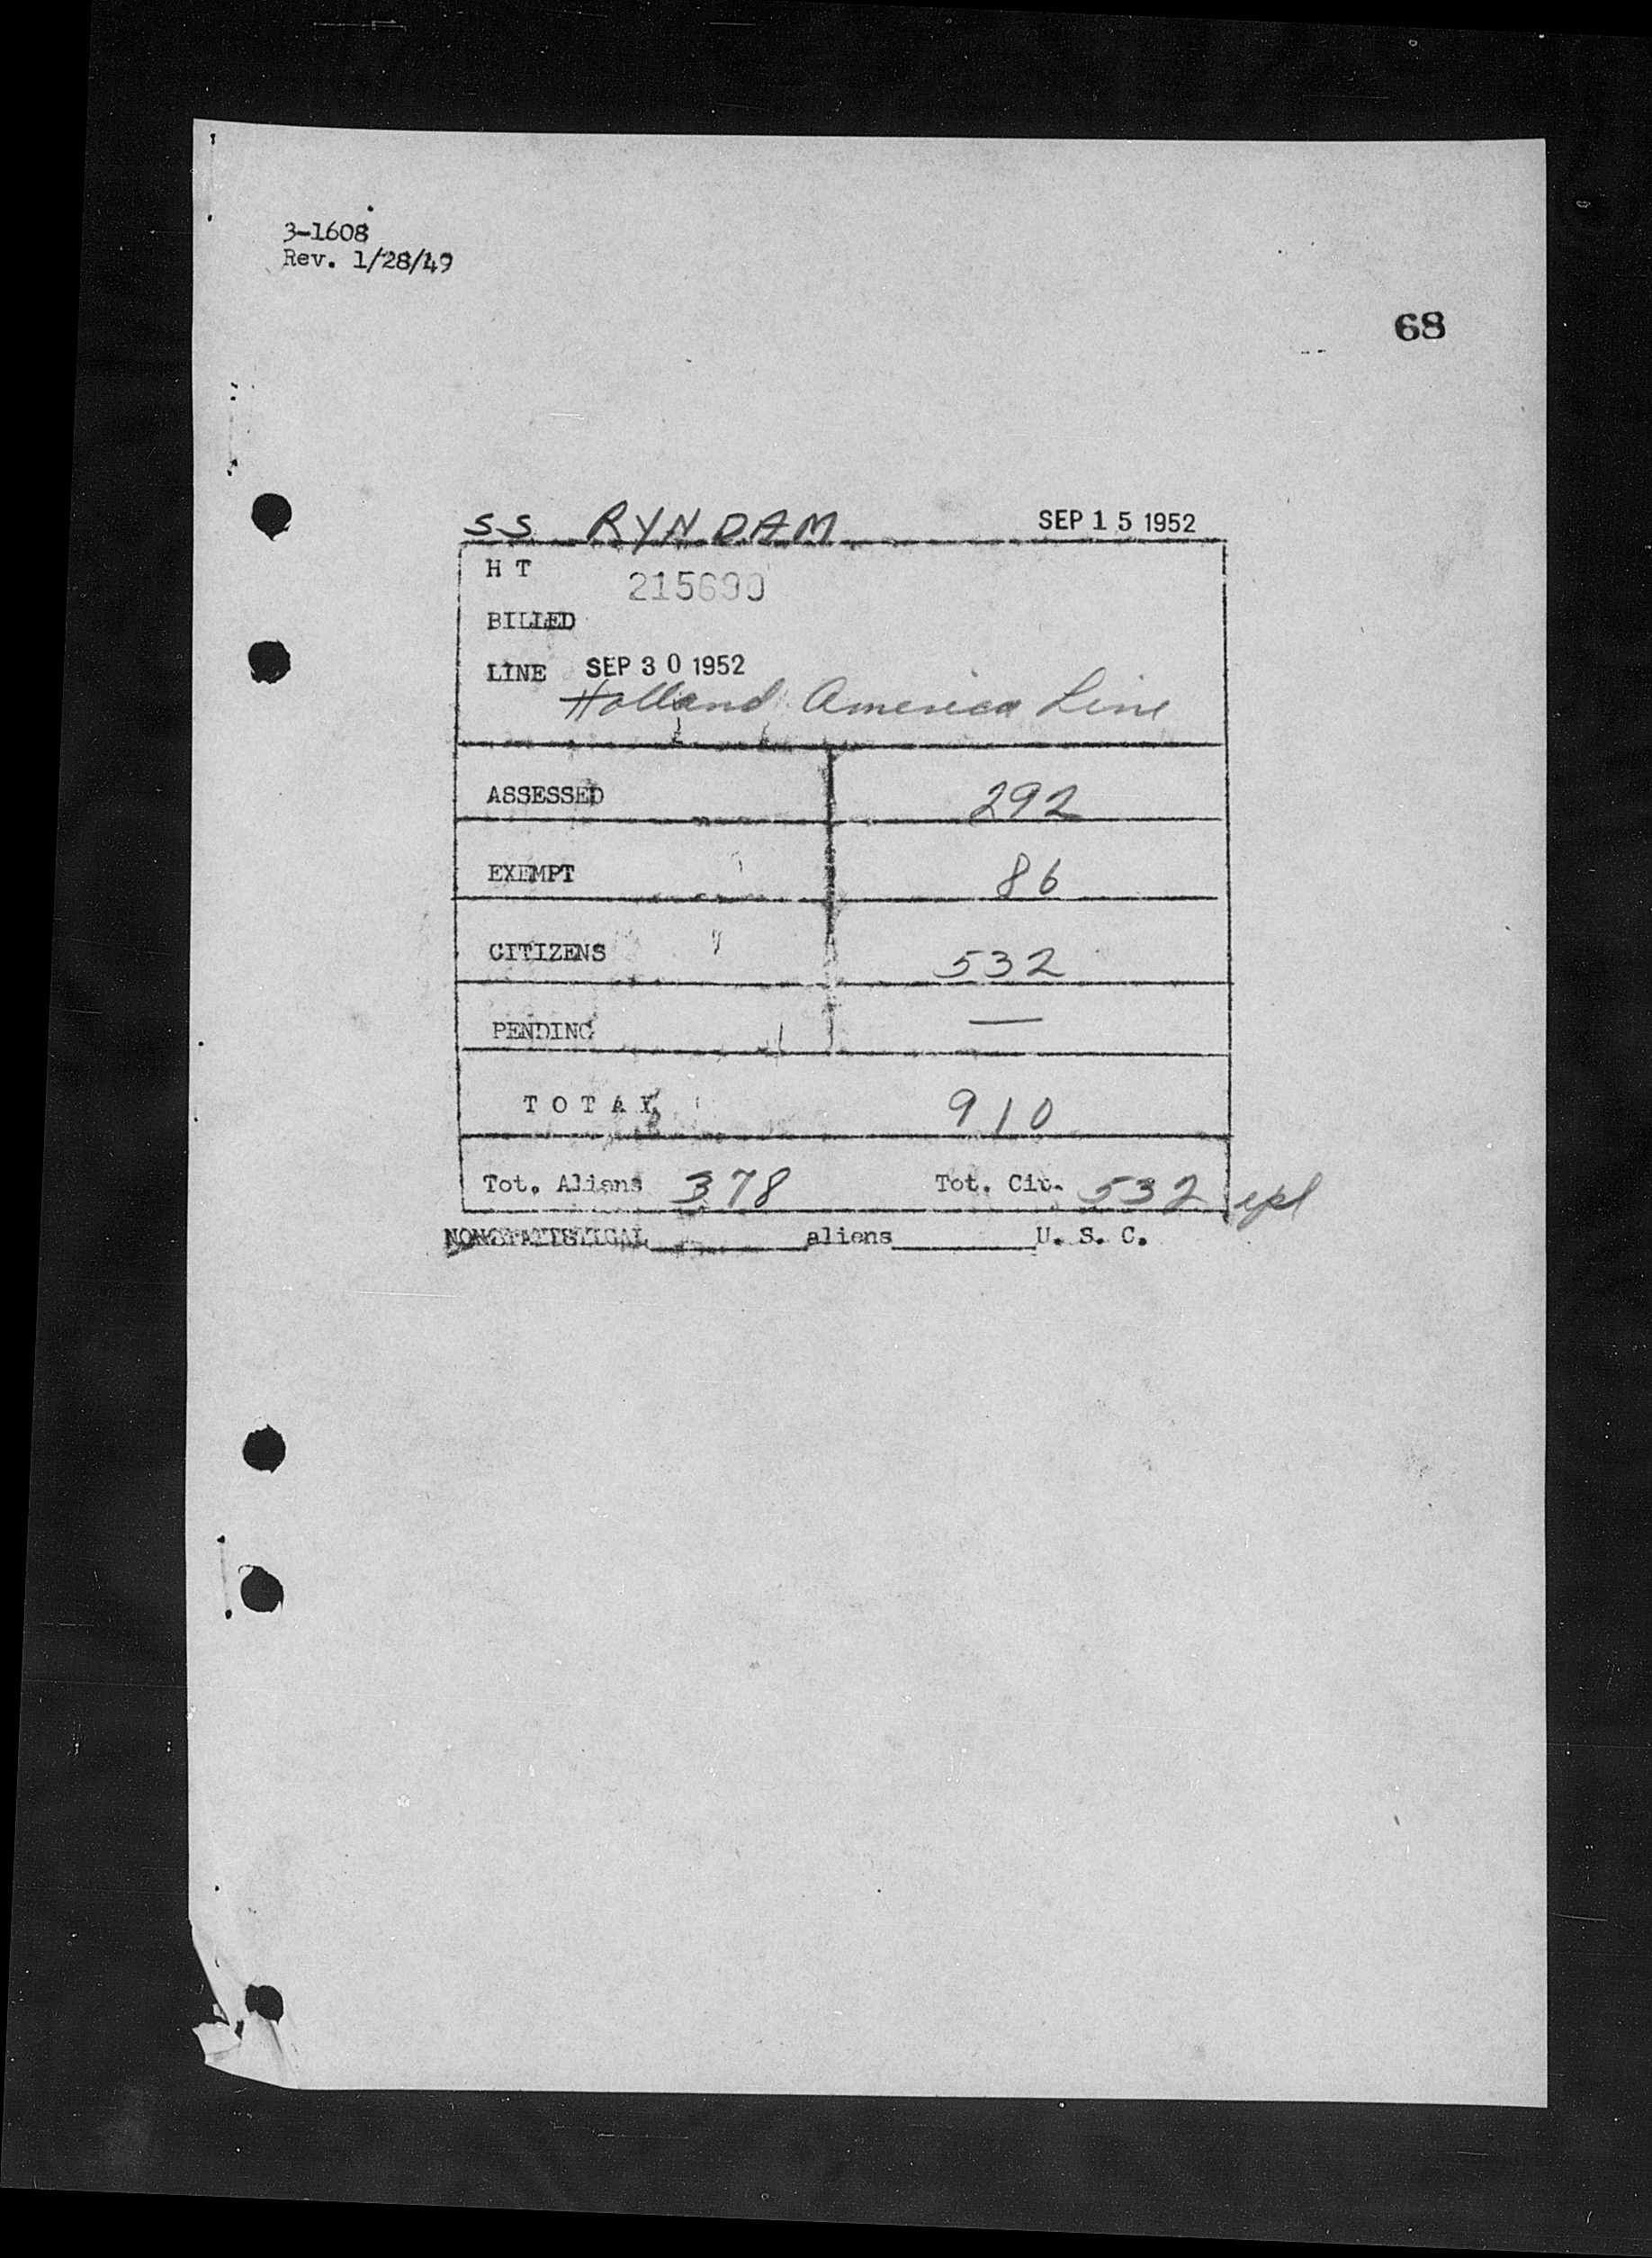 3-1608
Rev. 1/28/49
68
SS RYNDAM SEP 15 1952
H T
BILLED
LINE SEP 30 1952
Holland America Line
ASSESSED 292
EXEMPT 86
CITIZENS 532
PENDING —
TOTAL 910
Tot. Aliens 378 Tot. Cit. 532
NONSTATISTICAL aliens U. S. C.